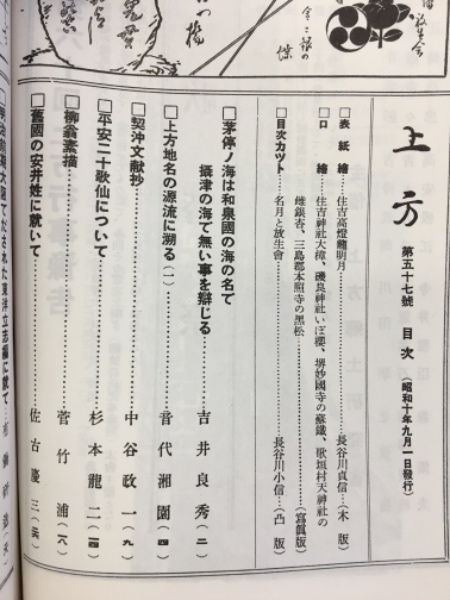 上方 第五十七號 目次 (昭和十年九月一日發行)
□表紙繪……住吉高燈籠明月……長谷川貞信…(木版)
□口繪……住吉神社大漳、磯良神社いぼ櫻、堺妙國寺の蘇鐵、歌垣村天神社の
雌銀杏、三島郡本照寺の黒松……(寫眞版)
□目次カツト……名月と放生會……長谷川小信…(凸版)
□茅停ノ海は和泉國の海の名で
攝津の海で無い事を辯じる……吉井良秀(二)
□上方地名の源流に溯る(一)……音代湘園(四)
□契沖文献抄……中谷政一(九)
□平安二十歌仙について……杉本龍二(一四)
□柳翁素描……菅竹浦(一八)
□舊國の安井姓に就いて……佐古慶三(二六)
東洋立志編に就て